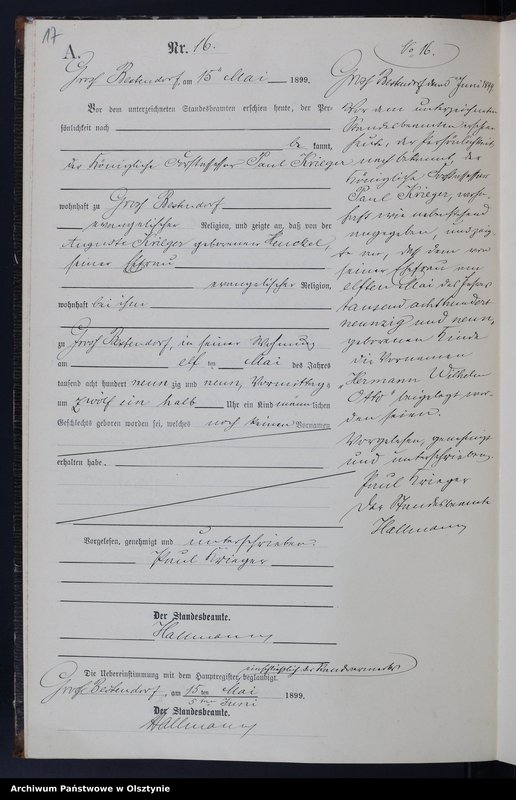 17
A.
Nr. 16.
Groß Bestendorf, am 15ten Mai 1899.
Vor dem unterzeichneten Standesbeamten erschien heute, der Per-
sönlichkeit nach
be kannt,
der Königliche Forstaufseher Paul Krieger
wohnhaft zu Groß Bestendorf
evangelischer Religion, und zeigte an, daß von der
Auguste Krieger geborenen Henckel,
seiner Ehefrau
evangelischer Religion,
wohnhaft bei ihm
zu Groß Bestendorf, in seiner Wohnung
am elf ten Mai des Jahres
tausend acht hundert neun zig und neun, Vormittags
um zwölf ein halb Uhr ein Kind männlichen
Geschlechts geboren worden sei, welches noch keinen Vornamen
erhalten habe.
Vorgelesen, genehmigt und unterschrieben.
Paul Krieger
Der Standesbeamte.
Hallmann
Die Uebereinstimmung mit dem Hauptregister einschließlich des Randvermerks beglaubigt.
Groß Bestendorf, am 15 ten Mai 1899.
5 ten Juni
Der Standesbeamte.
Hallmann
No 16.
Groß Bestendorf den 5 Juni 1899
Vor dem unterzeichneten
Standesbeamten erschien
heute, der Persönlichkeit
nach bekannt, der
Königliche Forstaufseher
Paul Krieger, wohn-
haft wie nebenstehend
angegeben, und zeig-
te an, daß dem von
seiner Ehefrau am
elften Mai des Jahres
tausend achthundert
neunzig und neun,
geborenen Kinde
die Vornamen
"Hermann Wilhelm
Otto" beigelegt wor-
den seien.
Vorgelesen, genehmigt
und unterschrieben.
Paul Krieger
Der Standesbeamte
Hallmann
Archiwum Państwowe w Olsztynie